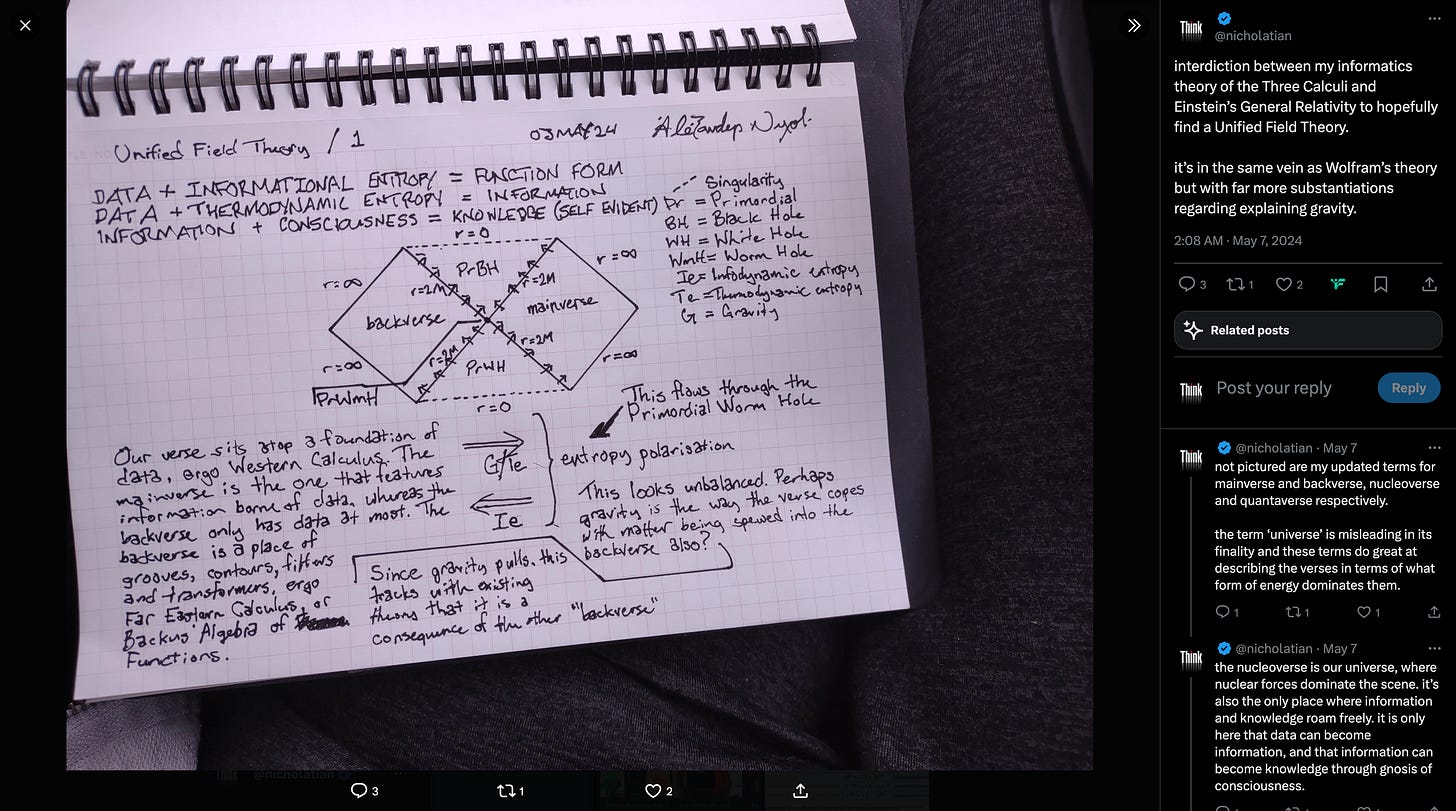 Unified Field Theory / 1
03MAY24
DATA + INFORMATIONAL ENTROPY = FUNCTION FORM
DATA + THERMODYNAMIC ENTROPY = INFORMATION
INFORMATION + CONSCIOUSNESS = KNOWLEDGE (SELF EVIDENT)
Singularity
Pr = Primordial
BH = Black Hole
WH = White Hole
WmH = Worm Hole
Ie = Infodynamic entropy
Te = Thermodynamic entropy
G = Gravity
r=0
r=∞
PrBH
r=∞
r=2M
r=2M
backverse
mainverse
r=2M
r=2M
r=∞
PrWH
r=∞
PrWmH
r=0
This flows through the
Primordial Worm Hole
entropy polarisation
Our verse sits atop a foundation of
data, ergo Western Calculus. The
mainverse is the one that features
information borne of data, whereas the
backverse only has data at most. The
backverse is a place of
grooves, contours, filters
and transformers, ergo
Far Eastern Calculus, or
Backus' Algebra of
Functions.
G/Te
Ie
This looks unbalanced. Perhaps
gravity is the way the verse copes
with matter being spewed into the
backverse also?
Since gravity pulls, this
tracks with existing
theory that it is a
consequence of the other "backverse"
3
1
2
Think
@nicholatian
interdiction between my informatics
theory of the Three Calculi and
Einstein's General Relativity to hopefully
find a Unified Field Theory.
it's in the same vein as Wolfram's theory
but with far more substantiations
regarding explaining gravity.
2:08 AM · May 7, 2024
3
1
2
Related posts
Think
Post your reply
Reply
Think
@nicholatian · May 7
not pictured are my updated terms for
mainverse and backverse, nucleoverse
and quantaverse respectively.
the term 'universe' is misleading in its
finality and these terms do great at
describing the verses in terms of what
form of energy dominates them.
1
1
1
Think
@nicholatian · May 7
the nucleoverse is our universe, where
nuclear forces dominate the scene. it's
also the only place where information
and knowledge roam freely. it is only
here that data can become
information, and that information can
become knowledge through gnosis of
consciousness.